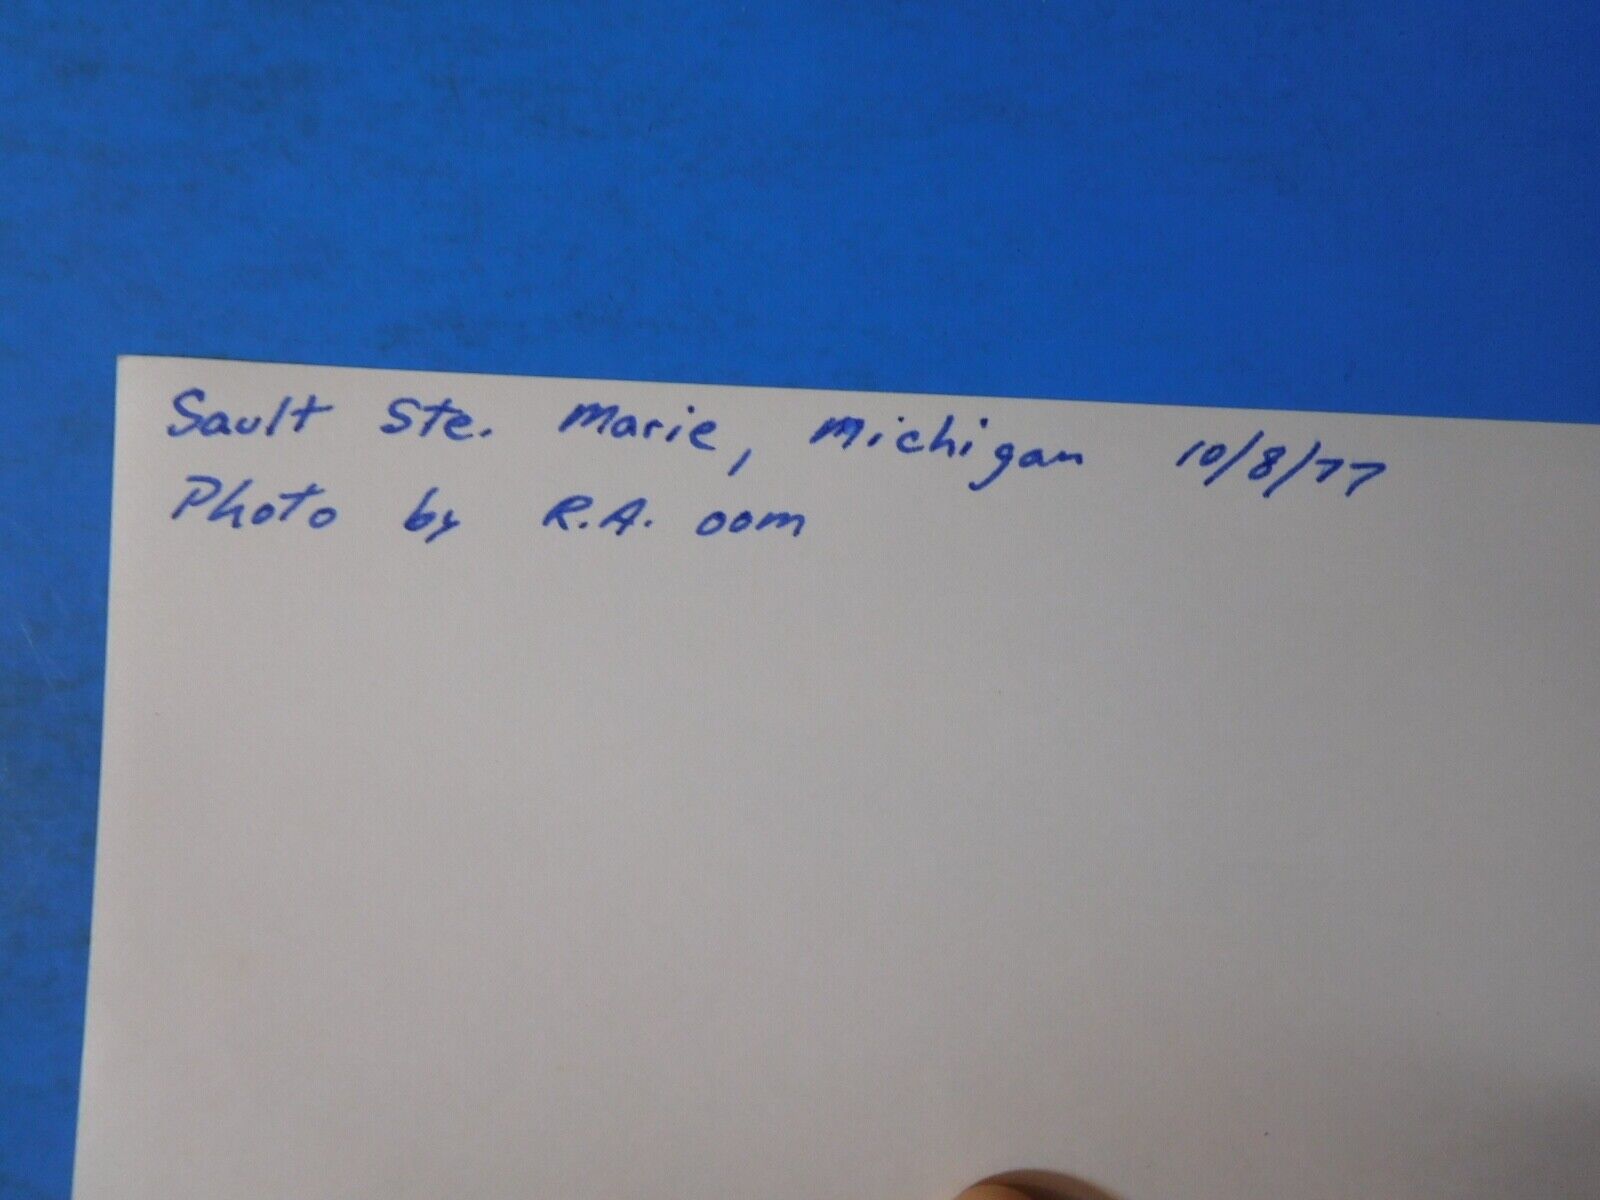 Sault Ste. Marie, Michigan 10/8/77
Photo by R.A. oom